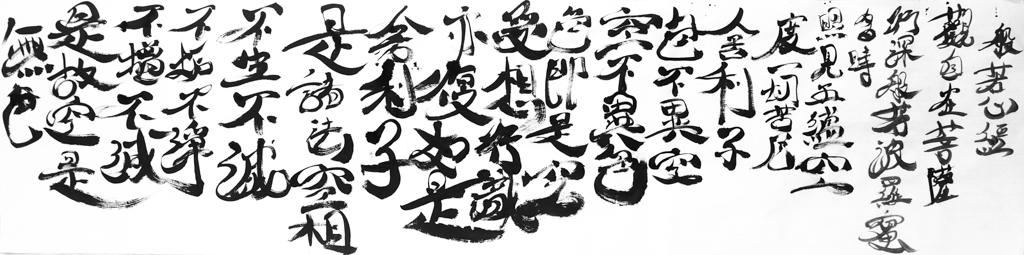 般若心經
觀自在菩薩
行深般若波羅蜜
多時
照見五蘊空
度一切苦厄
舍利子
色不異空
空不異色
色即是空
受想行識
亦復如是
舍利子
是諸法空相
不生不滅
不垢不淨
不增不減
是故空是
無色